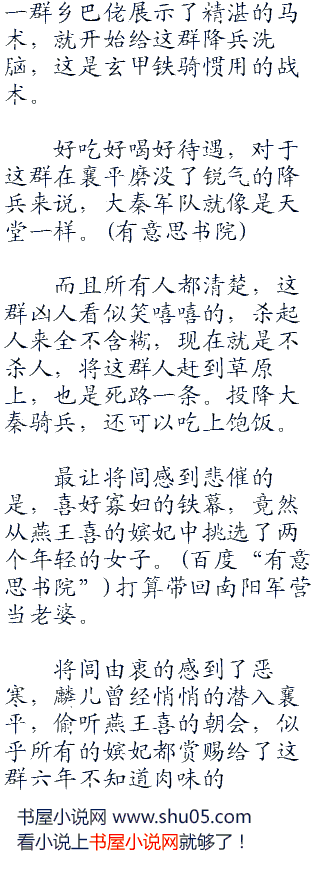 一群乡巴佬展示了精湛的马
术，就开始给这群降兵洗
脑，这是玄甲铁骑惯用的战
术。
好吃好喝好待遇，对于
这群在襄平磨没了锐气的降
兵来说，大秦军队就像是天
堂一样。(有意思书院)
而且所有人都清楚，这
群凶人看似笑嘻嘻的，杀起
人来全不含糊，现在就是不
杀人，将这群人赶到草原
上，也是死路一条。投降大
秦骑兵，还可以吃上饱饭。
最让将闾感到悲催的
是，喜好寡妇的铁幕，竟然
从燕王喜的嫔妃中挑选了两
个年轻的女子。(百度“有意
思书院”)打算带回南阳军营
当老婆。
将闾由衷的感到了恶
寒，麟儿曾经悄悄的潜入襄
平，偷听燕王喜的朝会，似
乎所有的嫔妃都赏赐给了这
群六年不知道肉味的
书屋小说网 www.shu05.com
看小说上书屋小说网就够了！